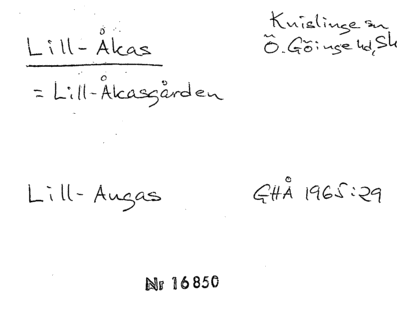 Lill-Åkas
Knislinge sn
Ö. Göinge hd, Sk
= Lill-Åkasgården
Lill-Augas
GHÅ 1965:29
Nr 16850